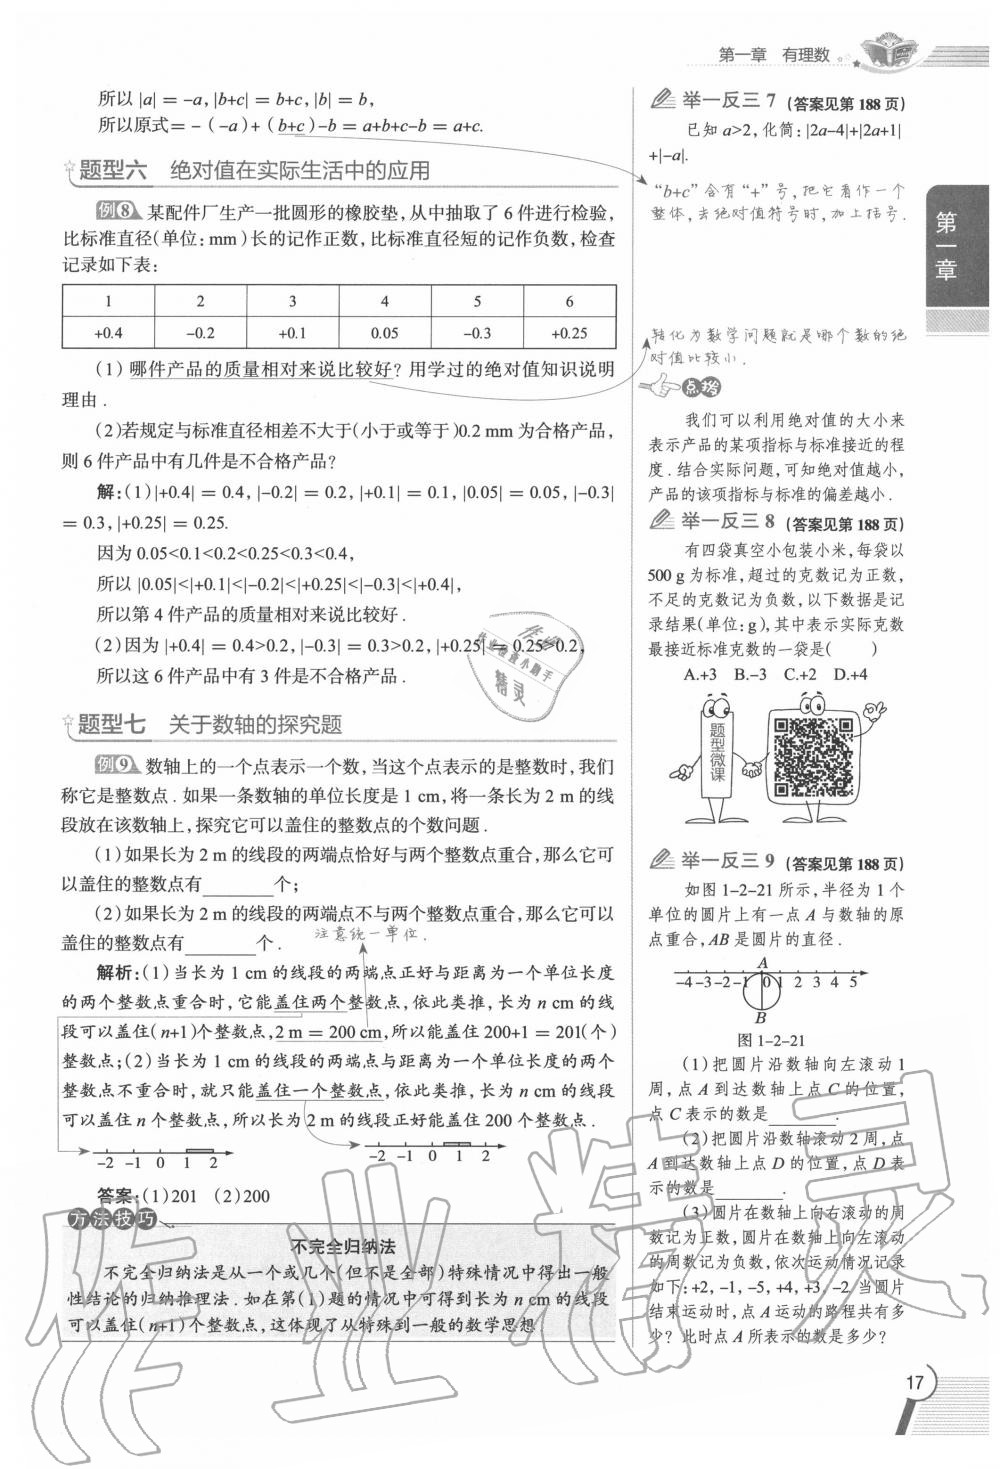 第一章　有理数
所以 |a| = -a, |b+c| = b+c, |b| = b,
所以原式= - ( -a)+ (b+c)-b = a+b+c-b = a+c.
题型六　绝对值在实际生活中的应用
例8 某配件厂生产一批圆形的橡胶垫,从中抽取了 6 件进行检验,
比标准直径(单位: mm)长的记作正数,比标准直径短的记作负数,检查
记录如下表:
1 2 3 4 5 6
+0.4 -0.2 +0.1 0.05 -0.3 +0.25
(1) 哪件产品的质量相对来说比较好? 用学过的绝对值知识说明
理由.
(2)若规定与标准直径相差不大于(小于或等于)0.2 mm 为合格产品,
则 6 件产品中有几件是不合格产品?
解:(1)|+0.4| = 0.4, |-0.2| = 0.2, |+0.1| = 0.1, |0.05| = 0.05, |-0.3|
= 0.3, |+0.25| = 0.25.
因为 0.05<0.1<0.2<0.25<0.3<0.4,
所以 |0.05|<|+0.1|<|-0.2|<|+0.25|<|-0.3|<|+0.4|,
所以第 4 件产品的质量相对来说比较好.
(2)因为 |+0.4| = 0.4>0.2, |-0.3| = 0.3>0.2, |+0.25| = 0.25>0.2,
所以这 6 件产品中有 3 件是不合格产品.
题型七　关于数轴的探究题
例9 数轴上的一个点表示一个数,当这个点表示的是整数时,我们
称它是整数点.如果一条数轴的单位长度是 1 cm,将一条长为 2 m 的线
段放在该数轴上,探究它可以盖住的整数点的个数问题.
(1)如果长为 2 m 的线段的两端点恰好与两个整数点重合,那么它可
以盖住的整数点有________个;
(2)如果长为 2 m 的线段的两端点不与两个整数点重合,那么它可以
盖住的整数点有________个.
注意统一单位.
解析:(1)当长为 1 cm 的线段的两端点正好与距离为一个单位长度
的两个整数点重合时,它能盖住两个整数点,依此类推,长为 n cm 的线
段可以盖住(n+1)个整数点,2 m = 200 cm,所以能盖住 200+1 = 201(个)
整数点;(2)当长为 1 cm 的线段的两端点与距离为一个单位长度的两个
整数点不重合时,就只能盖住一个整数点,依此类推,长为 n cm 的线段
可以盖住 n 个整数点,所以长为 2 m 的线段正好能盖住 200 个整数点.
-2 -1 0 1 2
-2 -1 0 1 2
答案:(1)201 (2)200
方法技巧
不完全归纳法
不完全归纳法是从一个或几个(但不是全部)特殊情况中得出一般
性结论的归纳推理法.如在第(1)题的情况中可得到长为 n cm 的线段
可以盖住(n+1)个整数点,这体现了从特殊到一般的数学思想
举一反三 7 (答案见第 188 页)
已知 a>2,化简: |2a-4|+|2a+1|
+|-a|.
“b+c”含有“+”号,把它看作一个
整体,去绝对值符号时,加上括号.
转化为数学问题就是哪个数的绝
对值比较小.
点拨
我们可以利用绝对值的大小来
表示产品的某项指标与标准接近的程
度.结合实际问题,可知绝对值越小,
产品的该项指标与标准的偏差越小.
举一反三 8 (答案见第 188 页)
有四袋真空小包装小米,每袋以
500 g 为标准,超过的克数记为正数,
不足的克数记为负数,以下数据是记
录结果(单位:g),其中表示实际克数
最接近标准克数的一袋是(　　)
A.+3 B.-3 C.+2 D.+4
题型微课
举一反三 9 (答案见第 188 页)
如图 1-2-21 所示,半径为 1 个
单位的圆片上有一点 A 与数轴的原
点重合,AB 是圆片的直径.
A
-4 -3 -2 -1 0 1 2 3 4 5
B
图 1-2-21
(1)把圆片沿数轴向左滚动 1
周,点 A 到达数轴上点 C 的位置,
点 C 表示的数是________.
(2)把圆片沿数轴滚动 2 周,点
A 到达数轴上点 D 的位置,点 D 表
示的数是________.
(3)圆片在数轴上向右滚动的周
数记为正数,圆片在数轴上向左滚动
的周数记为负数,依次运动情况记录
如下:+2,-1,-5,+4,+3,-2.当圆片
结束运动时,点 A 运动的路程共有多
少? 此时点 A 所表示的数是多少?
第一章
17
作业精灵